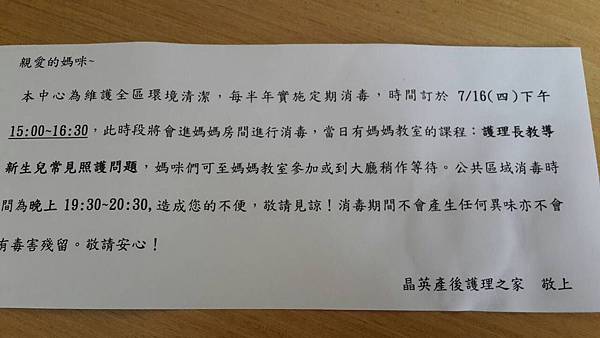 親愛的媽咪~
本中心為維護全區環境清潔，每半年實施定期消毒，時間訂於 7/16(四)下午
15:00~16:30，此時段將會進媽媽房間進行消毒，當日有媽媽教室的課程：護理長教導
新生兒常見照護問題，媽咪們可至媽媽教室參加或到大廳稍作等待。公共區域消毒時
間為晚上 19:30~20:30,造成您的不便，敬請見諒！消毒期間不會產生任何異味亦不會
有毒害殘留。敬請安心！
晶英產後護理之家 敬上